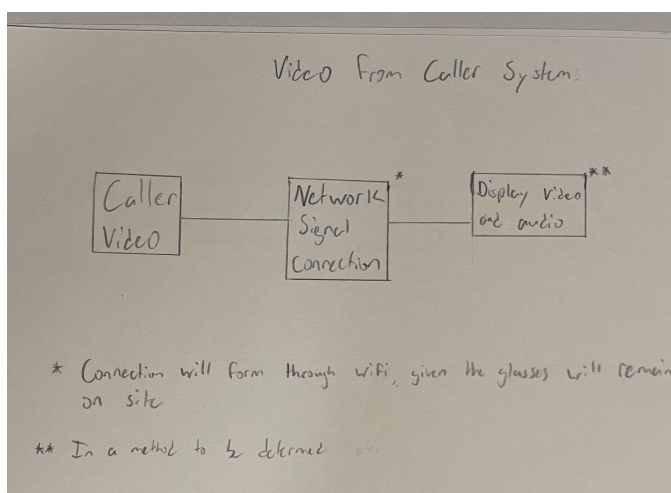 Video From Caller System:
Caller
Video
Network *
Signal
Connection
Display Video **
and audio
* Connection will form through wifi, given the glasses will remain
on site
** In a method to be determed